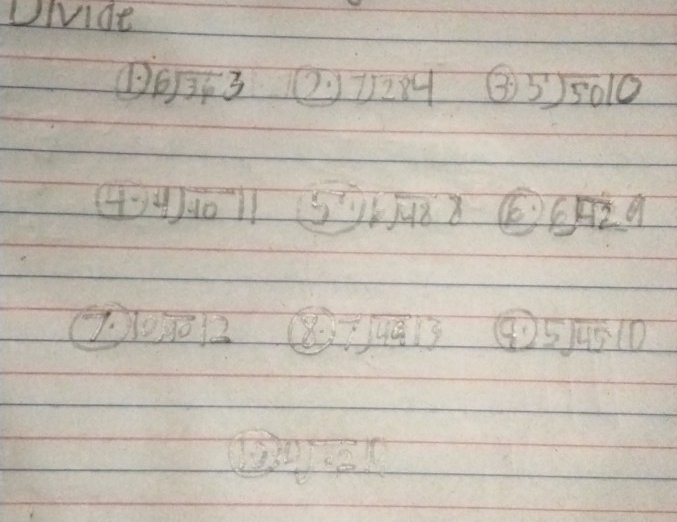 Divide
① 6)36 3 ② 7)28 4 ③ 5)50 10
④ 4)40 11 ⑤ 6)48 8 ⑥ 6)42 9
⑦ 10)10 12 ⑧ 7)49 13 ⑨ 5)45 10
⑩